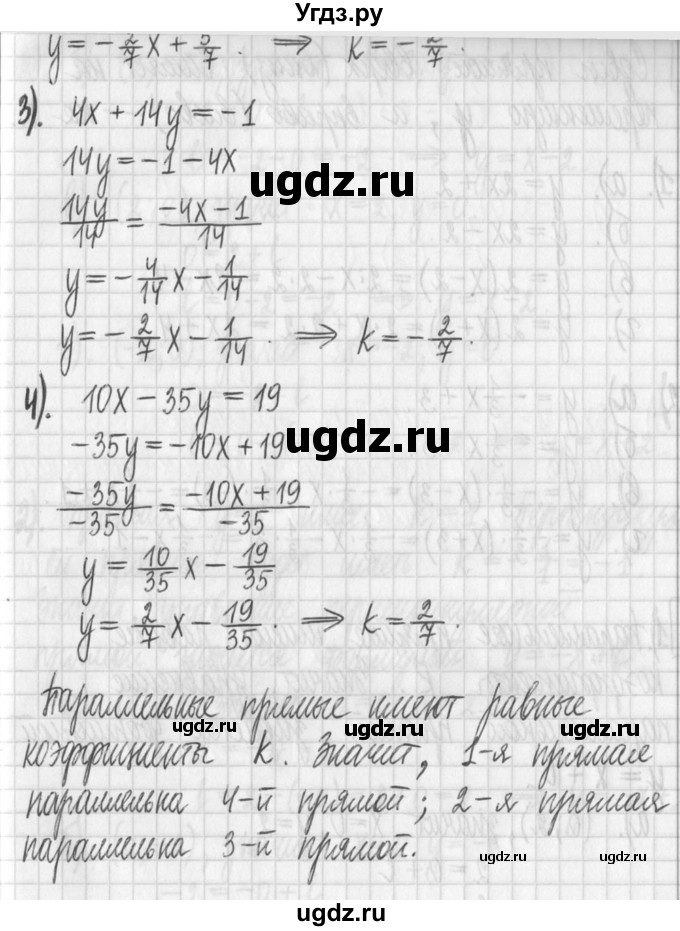 Угдз.ру
y = - 2/7 x + 5/7 . ⟹ k = - 2/7 .
3). 4x + 14y = -1
14y = -1 - 4x
ugdz.ru
14y/14 = (-4x - 1)/14
y = - 4/14 x - 1/14
y = - 2/7 x - 1/14 . ⟹ k = - 2/7 .
4). 10x - 35y = 19
-35y = -10x + 19
ugdz.ru
-35y/-35 = (-10x + 19)/-35
y = 10/35 x - 19/35
y = 2/7 x - 19/35 . ⟹ k = 2/7 .
Параллельные прямые имеют равные
ugdz.ru ugdz.ru
коэффициенты k. Значит, 1-я прямая
параллельна 4-й прямой; 2-я прямая
параллельна 3-й прямой.
ugdz.ru ugdz.ru
ugdz.ru